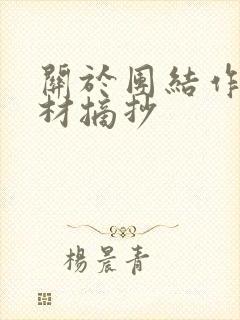 關於團結作
材摘抄
楊晨青